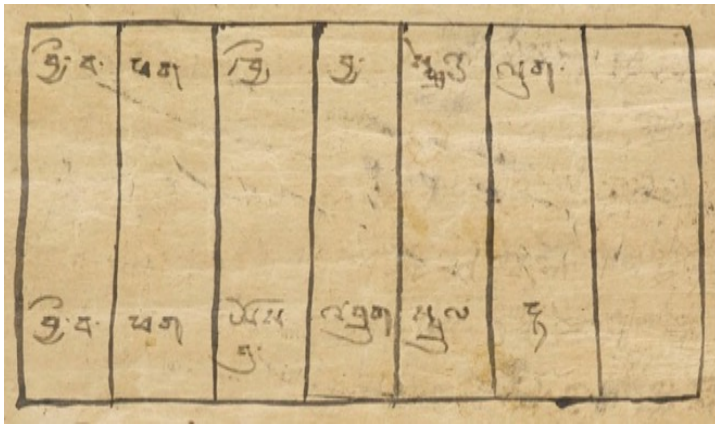 བྱི་བ་ ཕག ཁྱི བྱ་ སྤྲེའུ ལུག་
བྱི་བ་ ཕག ཡོས འབྲུག སྦྲུལ རྟ
བུ་